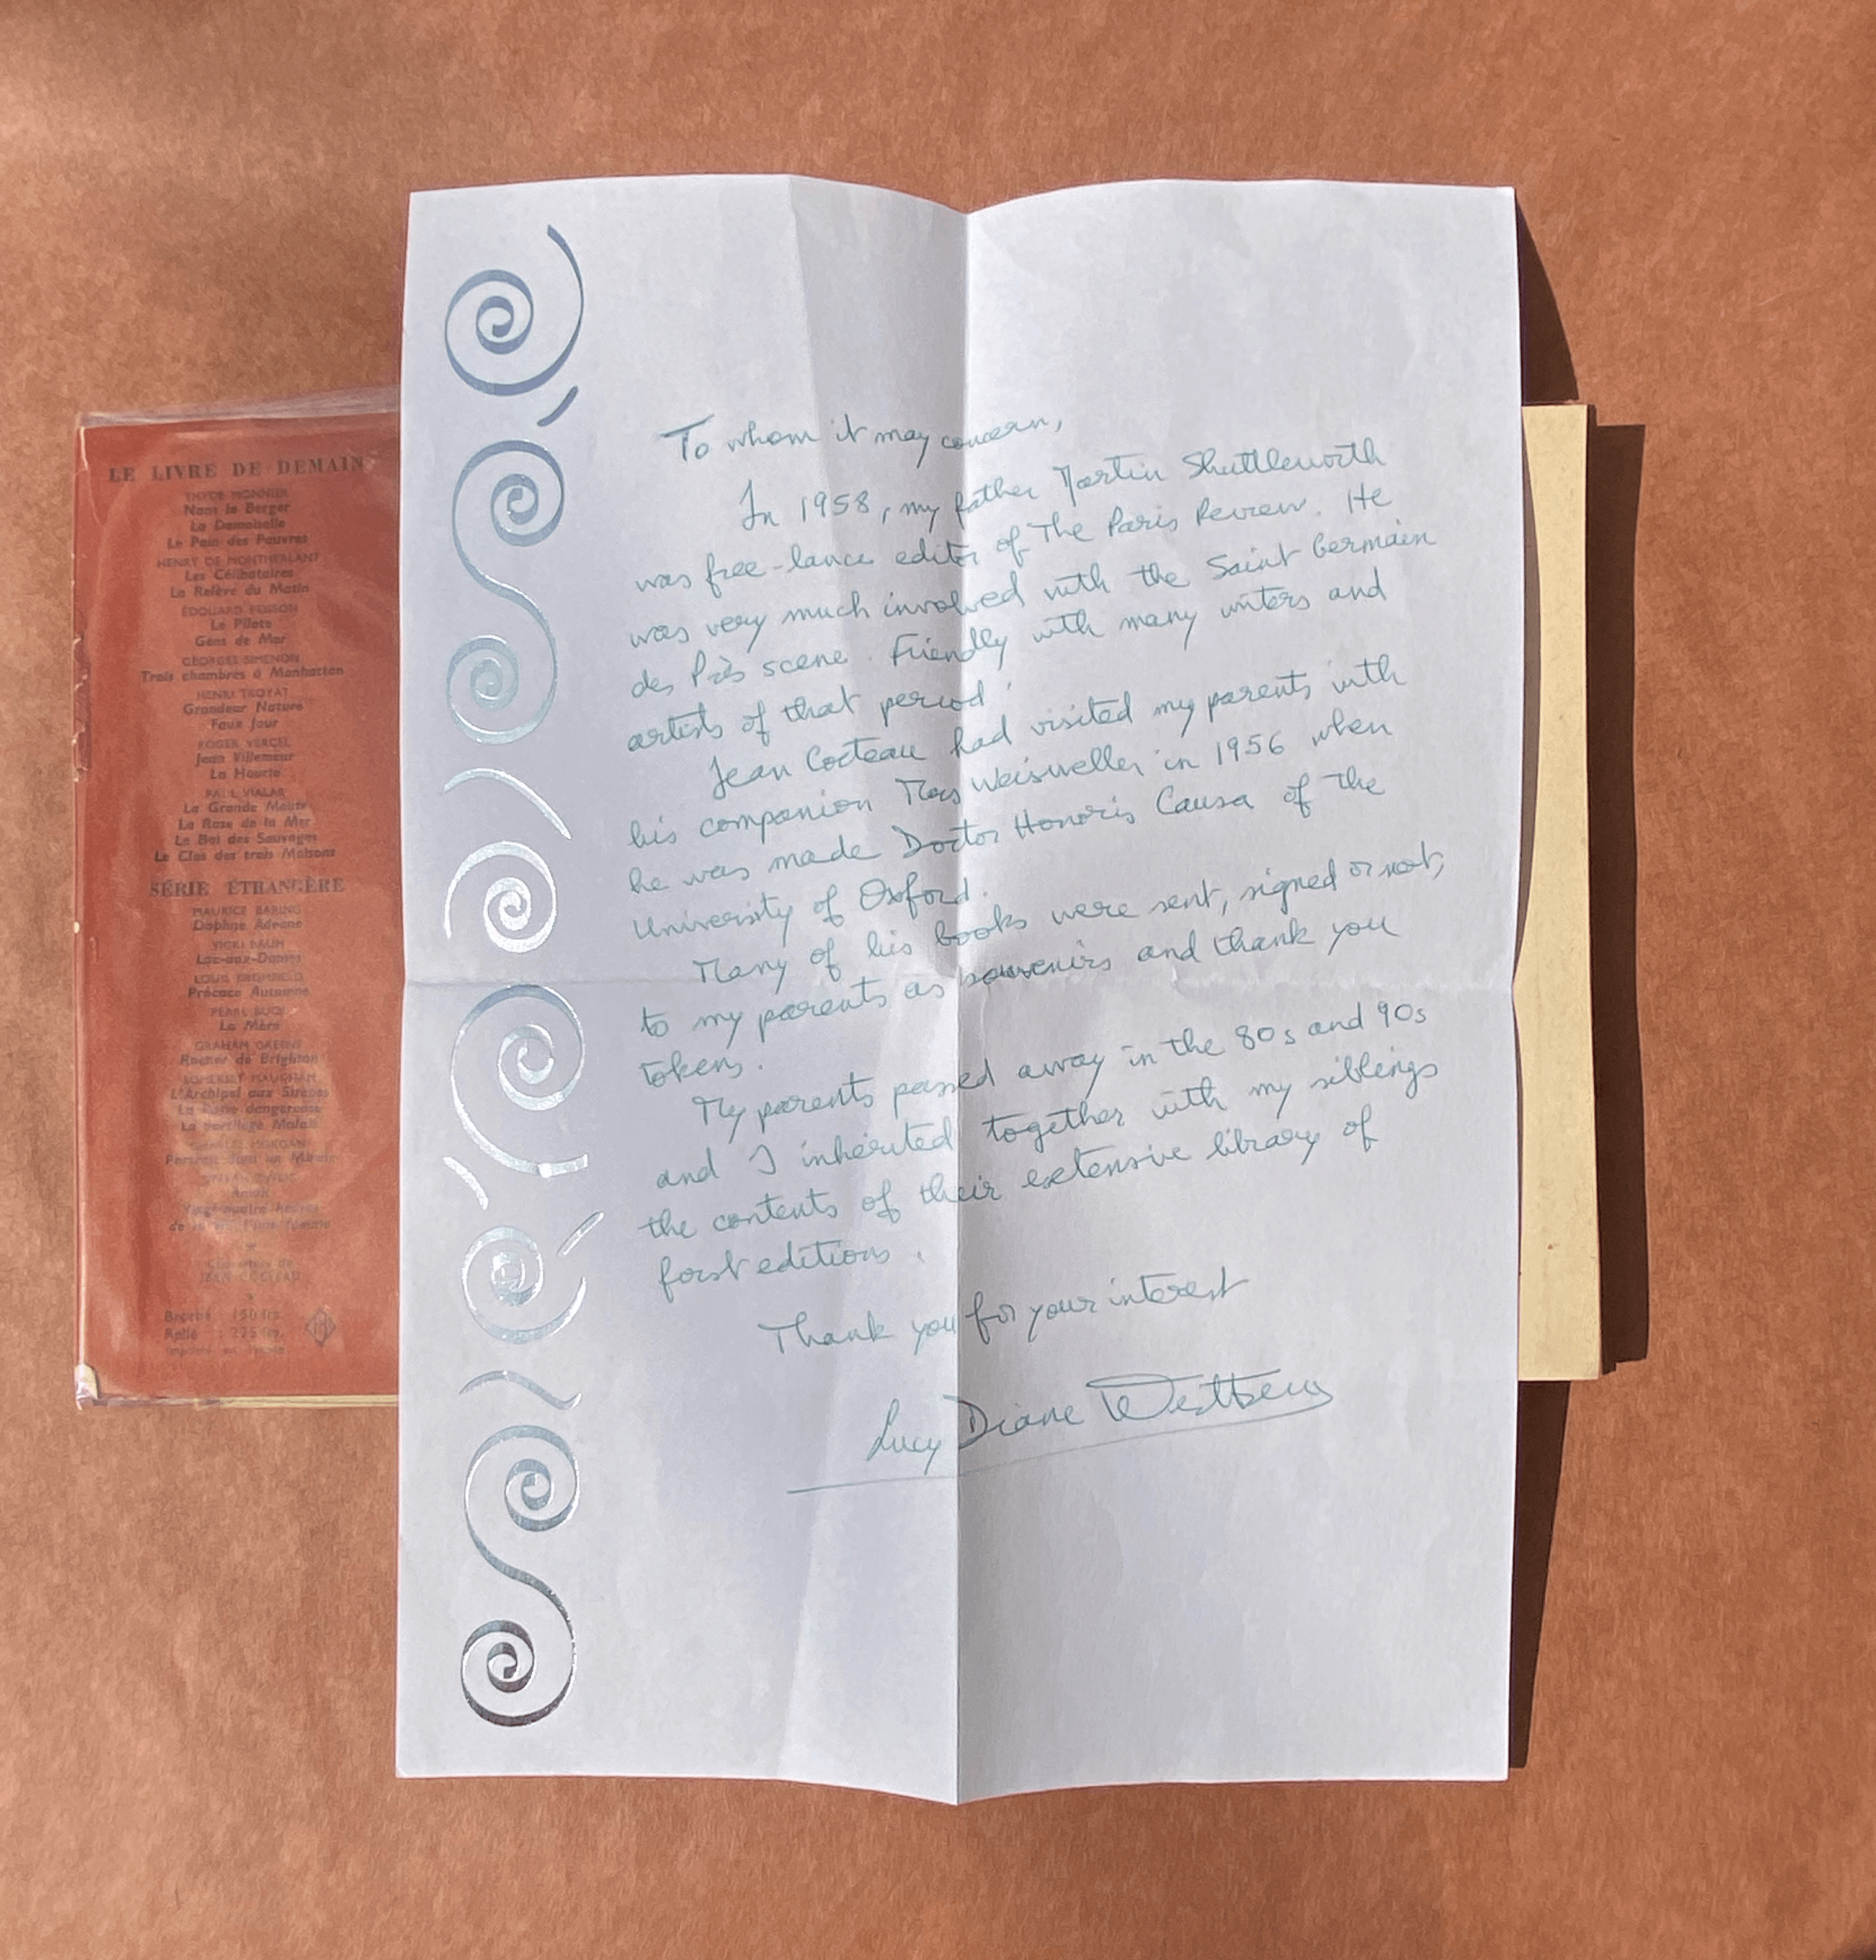 LE LIVRE DE DEMAIN
THYDE MONNIER
Nans le Berger
La Demoiselle
Le Pain des Pauvres
HENRY DE MONTHERLANT
Les Célibataires
La Relève du Matin
ÉDOUARD PEISSON
Le Pilote
Gens de Mer
GEORGES SIMENON
Trois chambres à Manhattan
HENRI TROYAT
Grandeur Nature
Faux Jour
ROGER VERCEL
Jean Villemeur
La Hourie
PAUL VIALAR
La Grande Meute
La Rose de la Mer
Le Bal des Sauvages
Le Clos des trois Maisons
SÉRIE ÉTRANGÈRE
MAURICE BARING
Daphne Adeane
VICKI BAUM
Lac-aux-Dames
LOUIS BROMFIELD
Précoce Automne
PEARL BUCK
La Mère
GRAHAM GREENE
Rocher de Brighton
SOMERSET MAUGHAM
L'Archipel aux Sirènes
La Passe dangereuse
Le Sortilège Malais
CHARLES MORGAN
Portrait dans un Miroir
STEFAN ZWEIG
Amok
Vingt-quatre heures
de la vie d'une femme
Couverture de
JEAN COCTEAU
Broché 150 frs
Relié : 225 frs.
To whom it may concern,
In 1958, my father Martin Shuttleworth
was free-lance editor of The Paris Review. He
was very much involved with the Saint Germain
des Près scene. Friendly with many writers and
artists of that period.
Jean Cocteau had visited my parents with
his companion Mrs Weisweller in 1956 when
he was made Doctor Honoris Causa of the
University of Oxford.
Many of his books were sent, signed or not,
to my parents as souvenirs and thank you
tokens.
My parents passed away in the 80s and 90s
and I inherited together with my siblings
the contents of their extensive library of
first editions.
Thank you for your interest
Lucy Diane Westberg